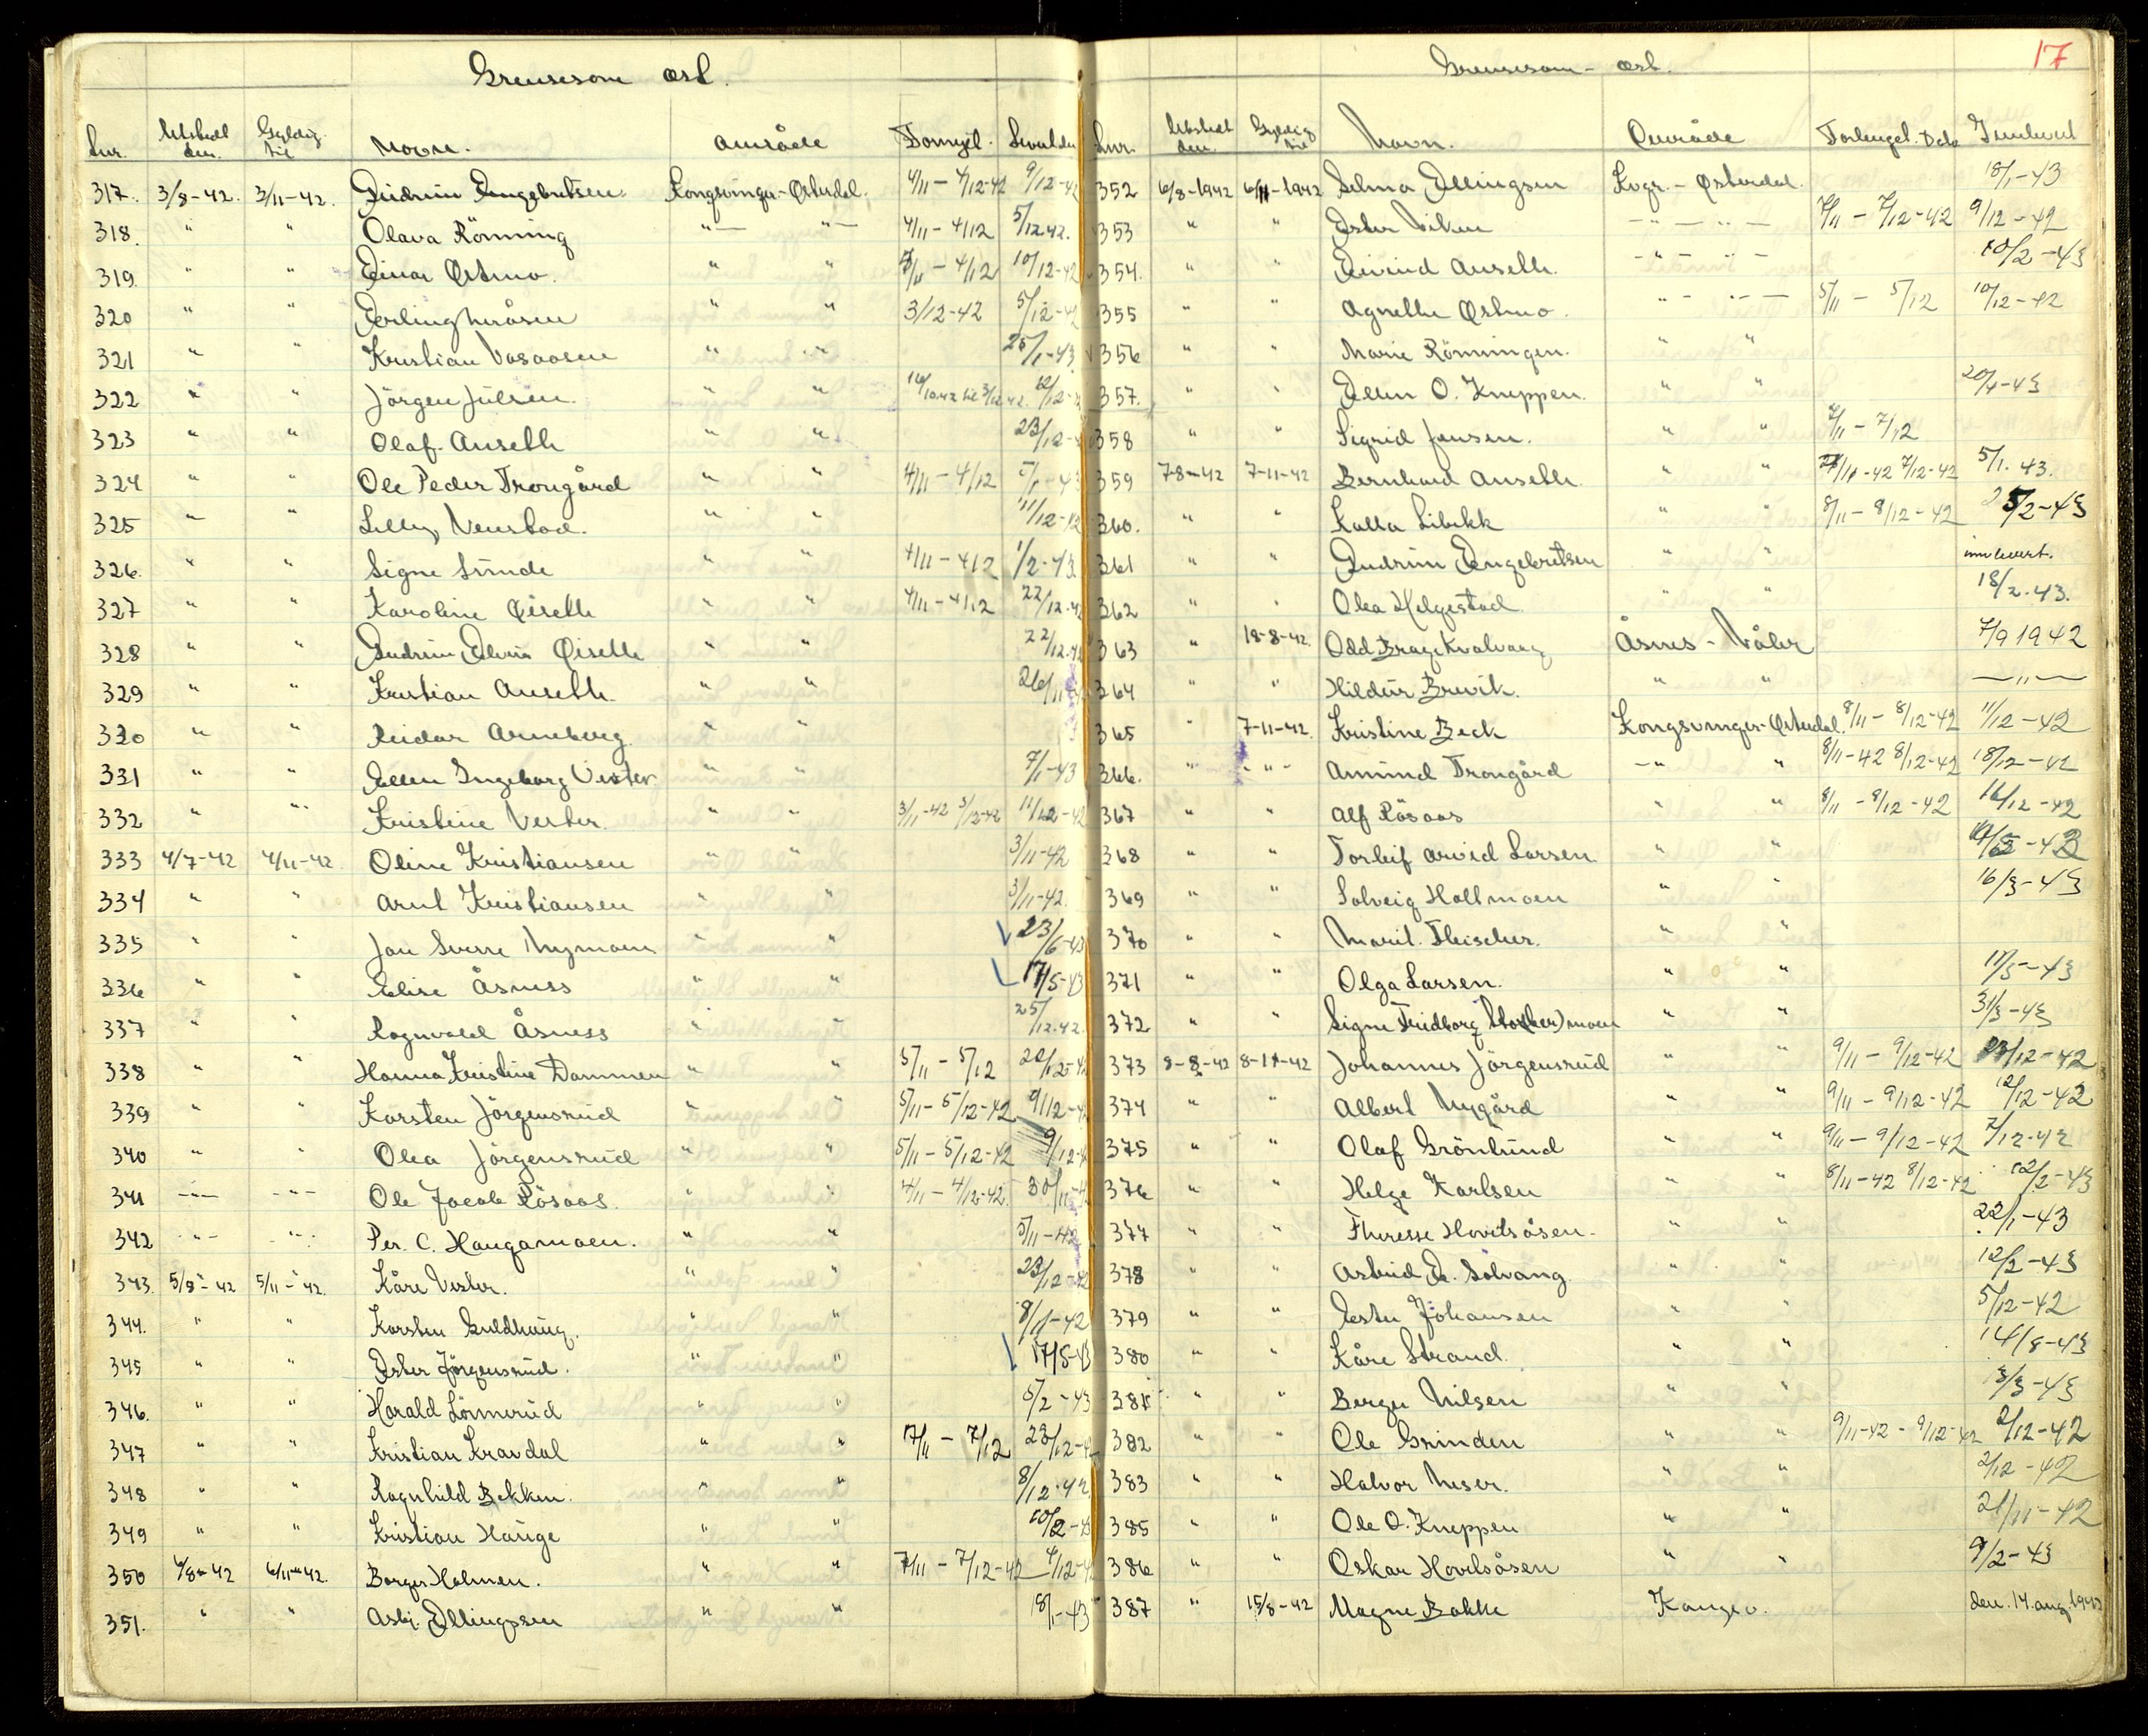 Grensesone øst.
Lnr. Utstedt den. Gyldig til Navn. Område Fornyet. Innlev.
317. 3/8-42. 3/11-42. Gudrun Engebretsen. Kongsvinger-Østerdal. 4/11 - 4/12-42 9/12-42
318. " " Olava Rönning " " 4/11 - 4/12 5/12.42.
319. " " Einar Østmo. " " - 4/12 10/12-42
320 " " " " 3/12-42 5/12-42
321 " " Kristian Vasaasen " " 25/1-43
322 " " Jörgen Julsen. " "
323 " " Olaf Anseth " " 23/12-
324 " " Ole Peder Trongård " " 4/11 - 4/12 5/1-43
325 " " Lilly Venstad. " " 11/12-42
326. " " Signe Lunde " " 4/11 - 4/12 1/2-43.
327 " " Karoline Øiseth " " 4/11 - 4/12 22/12-42
328 " " Gudrun Øiseth " " 22/12-42
329 " " Kristian Anseth. " " 26/11
330 " " Reidar Arneberg " "
331 " " Ellen Ingeborg Vester " " 7/1-43
332 " " Kristine Vester. " " 3/11-42 3/12-42 11/12-42
333 4/7-42 4/11-42. Oline Kristiansen " " 3/11-42
334 " " Arnt Kristiansen " " 3/11-42.
335 " " Jan Sverre Nymoen " " 23/6-43
336 " " Elise Åsness " " 17/5-43
337 " " Ragnvald Åsness " " 25/12.42.
338 " " Hanna Kristine Dammen " " 5/11 - 5/12
339 " " Karsten Jörgensrud " " 5/11 - 5/12-42 9/12-42
340 " " Olea Jörgensrud " " 5/11 - 5/12-42 9/12-42
341 -"- -"- Ole Jacob Rösaas. " " 4/11 - 4/12-42 30/11-42
342 -"- -"- Per. C. Haugamoen. " " 5/11-42
343. 5/8-42 5/11-42. Kåre Vester. " " 23/12-42
344. " " Karsten Guldhaug. " " 8/11-42
345 " " Ester Jörgensrud. " " 17/5-43
346. " " Harald Lönnerud " " 5/2-43
347 " " Kristian Kravdal " " 17/11 - 7/12 23/12-42
348 " " Ragnhild Bekken. " 8/12.42.
349 " " Kristian Hauge " " 10/2-43
350 6/8-42 6/11-42. Borger Holmen. " " 7/11 - 7/12-42 4/12-42
351. " " Asbj. Ellingsen " " 18/1-43
Grensesone - øst. 17
Lnr. Utstedt den. Gyldig til Navn. Område Forlenget. Dato Innlevert
352 6/8-1942 6/11-1942 Selma Ellingsen Kvgr. - Østerdal. 18/1-43
353 " " Ester Viken -"- -"- 7/11 - 7/12-42 9/12-42
354. " " Eivind Anseth. -"- -"- 10/2-43
355 " " Agnethe Østmo. "- "- 5/11 - 5/12 10/12-42
356 " " Marie Rönningen. " "
357. " " Ellen O. Kneppen. " " 20/4-43
358 " " Sigrid Jensen. " " 7/11 - 7/12
359 7-8-42 7-11-42 Bernhard Anseth. " " 7/12-42 5/1. 43.
360. " " Kalla Libekk " " 8/11 - 8/12-42 25/2-43
361 " " Gudrun Engebretsen " " innlevert.
362 " " Olea Helgestad. " " 18/2.43.
363 " 18-8-42. Odd Brage Kvalvaag Åsnes - Våler 7/9 1942
364 " " Hildur Brevik. " " -"-
365 " 7-11-42. Kristine Beck Kongsvinger-Østerdal. 8/11 - 8/12-42 11/12-42
366. " -"- Amund Trongård -" " 8/11-42 8/12-42 18/12-42
367 " " Alf Rösaas " " 8/11 - 8/12-42 16/12-42
368 " " Torleif Arvid Larsen " "
369 " " Solveig Hallmoen " " 16/3-43
370 " " Marit. Fleischer. " "
371 " " Olga Larsen. " " 11/5-43
372 " " Signe Fridborg moen " " 31/3-43
373 8-8-42 8-11-42 Johannes Jörgensrud " " 9/11 - 9/12-42
374 " " Albert Nygård " " 9/11 - 9/12-42 12/12-42
375 " " Olaf Grönlund " " 9/11 - 9/12-42 7/12-42
376 " " Helge Karlsen " " 8/11-42 8/12-42 12/2-43
377 " " Theresse Hovelsåsen. " " 22/1-43
378 " " Astrid E. Solvang. " " 12/2-43
379 " " Ester Johansen " " 5/12-42
380 " " Kåre Strand. " " 14/8-43
381 " " Berger Nilsen " " 13/3-43
382 " " Ole Grinden " " 9/11-42 - 9/12-42 2/12-42
383 " " Halvor Neser. " " 2/12-42
385 " " Ole O. Kneppen " " 21/11-42
386 " " Oskar Hovelsåsen " " 9/2-43
387 " 15/8-42 Magne Bakke Kongsv. den. 14. aug 1942